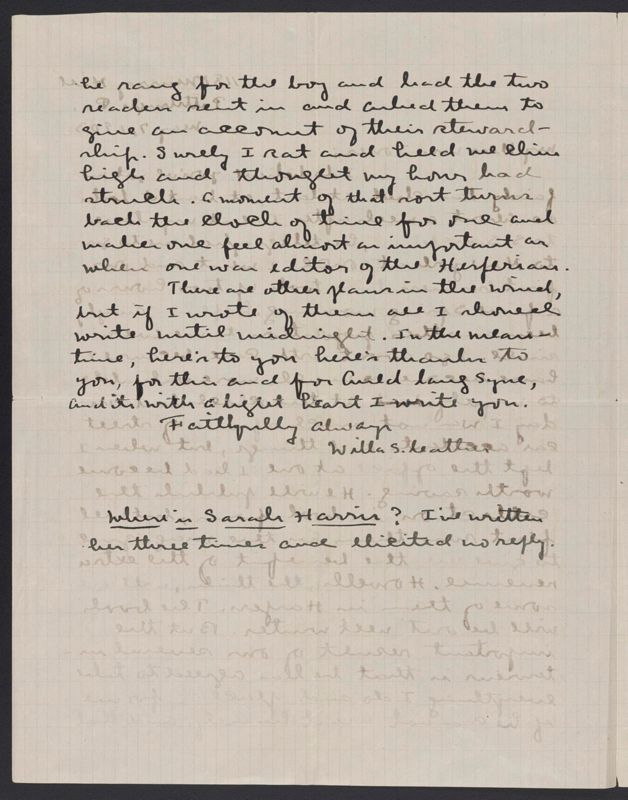 he rang for the boy and had the two
readers sent in and asked them to
give an account of their steward-
ship. Surely I sat and held me chin
high and thought my hour had
struck. A moment of that sort turns
back the clock of time for one and
makes one feel almost as important as
when one was editor of the Hesperian.
There are other plans in the wind,
but if I wrote of them all I should
write until midnight. In the mean-
time, here's to you here's thanks to
you, for this and for Auld lang syne,
and its with a light heart I write you.
Faithfully always
Willa S. Cather
Where is Sarah Harris? I've written
her three times and elicited no reply.